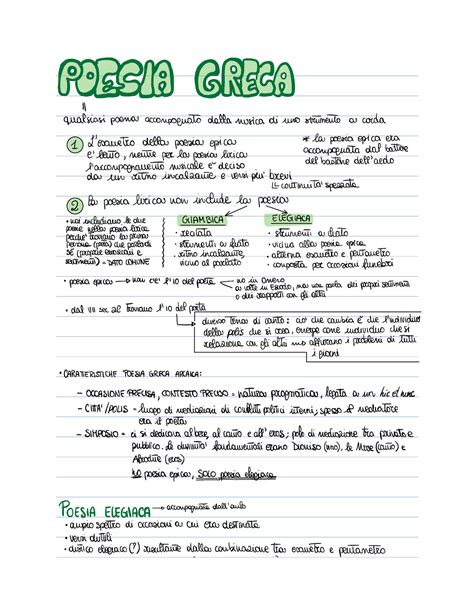 POESIA GRECA
qualsiasi poema accompagnato dalla musica di uno strumento a corda
1 L'esametro della poesia epica
è lento, mentre per la poesia lirica
l'accompagnamento musicale è deciso
da un ritmo incalzante e versi più brevi
↳ continuità spezzata
* la poesia epica era
accompagnata dal battere
del bastone dell'aedo
2 la poesia lirica non include la poesia
GIAMBICA
ELEGIACA
• noi includiamo le due
poesie nella poesia lirica
perché troviamo la prima
persona (poeta) che parla di
sé (proprie emozioni e
sentimenti) = DATO COMUNE
• recitata
• strumenti a fiato
• ritmo incalzante,
vicino al parlato
• strumenti a fiato
• vicina alla poesia epica
• alterna esametro e pentametro
• composta per occasioni funebri
• poesia epica → non c'è l'io del poeta → no in Omero
a volte in Esiodo, ma non parla dei propri sentimenti
o dei rapporti con gli altri
• dal VII sec aC troviamo l'IO del poeta
diverso tema di canto: ciò che cambia è che l'individuo
della polis che si crea, emerge come individuo che si
relaziona con gli altri ma affrontano i problemi di tutti
i giorni
• CARATTERISTICHE POESIA GRECA ARCAICA:
- OCCASIONE PRECISA, CONTESTO PRECISO = natura pragmatica, legata a un hic et nunc
- CITTA'/POLIS = luogo di mediazioni di conflitti politici interni; spesso il mediatore
era il poeta
- SIMPOSIO = ci si dedicava al bere, al canto e all'eros; polo di mediazione tra privato e
pubblico. Le divinità fondamentali erano Dioniso (vino), le Muse (canto) e
Afrodite (eros)
NO poesia epica, SOLO poesia elegiaca
POESIA ELEGIACA → accompagnata dall'aulo
• ampio spettro di occasioni a cui era destinata
• versi duttili
• distico elegiaco (?) risultante dalla combinazione tra esametro e pentametro